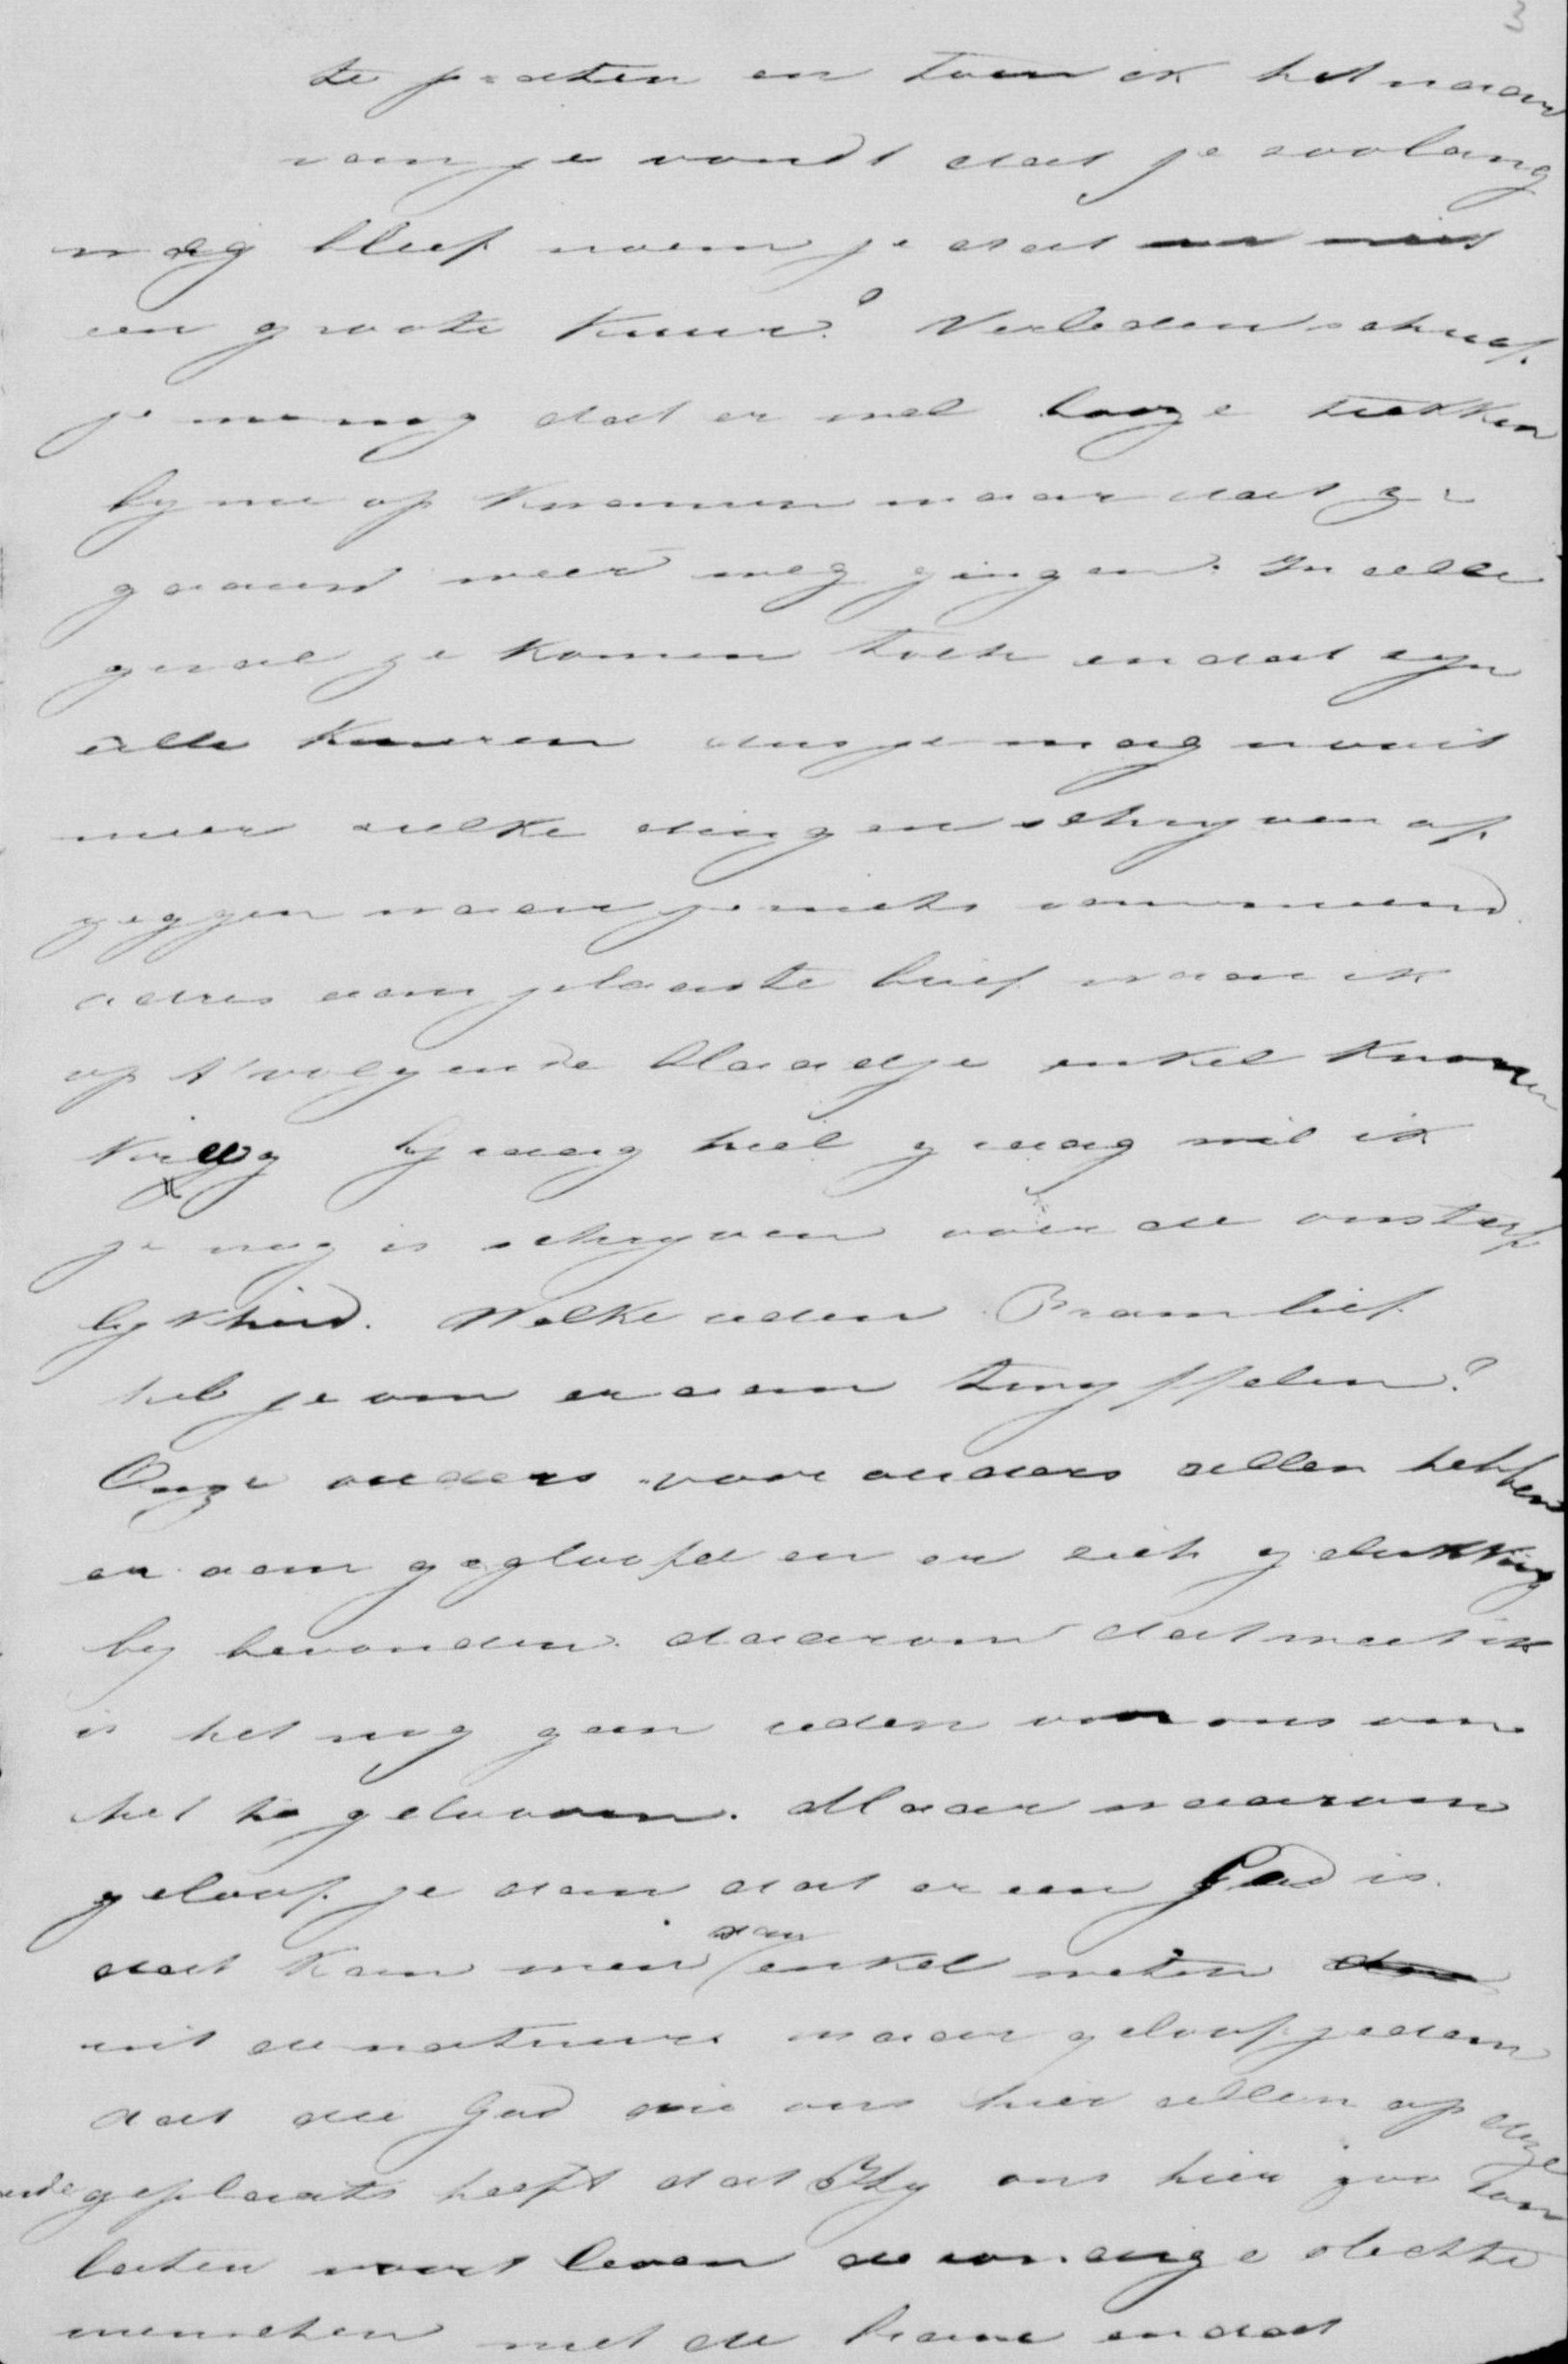 3
te praten en toen ik het naar
van je vondt dat je zoolang
weg bleef noem je dat
een groote kuur? Verleden schreef
je me nog dat er wel booze trekken
by me op kwamen maar dat ze
gaauw weer weg gingen. In alle
geval ze komen toch en dat zyn
alle kuuren dus je mag nooit
meer zulke dingen schryven of
zeggen maar je niets
adres aan je laaste brief waar ik
op t'volgende blaadje enkel
kreeg graag heel graag wil ik
je nog is schryven over de onsterf
lykheid. Welke reden Bram lief
heb je om er aan twyffelen?
Onze ouders voor ouders allen hebben
er aan geglooft en er zich gelukkig
by bevonden. daarom dat weet ik
is het nog geen reden voor ons om
het te gelooven. Maar waarom
geloof je dan dat er een God is.
dat kan men dan enkel weten
uit de natuur maar geloof je dan
dat die God die ons hier allen op deze
aarde geplaats heeft dat Hy ons hier zoo kan
laten voort leven de eenige slechte
menschen met de brave en dat